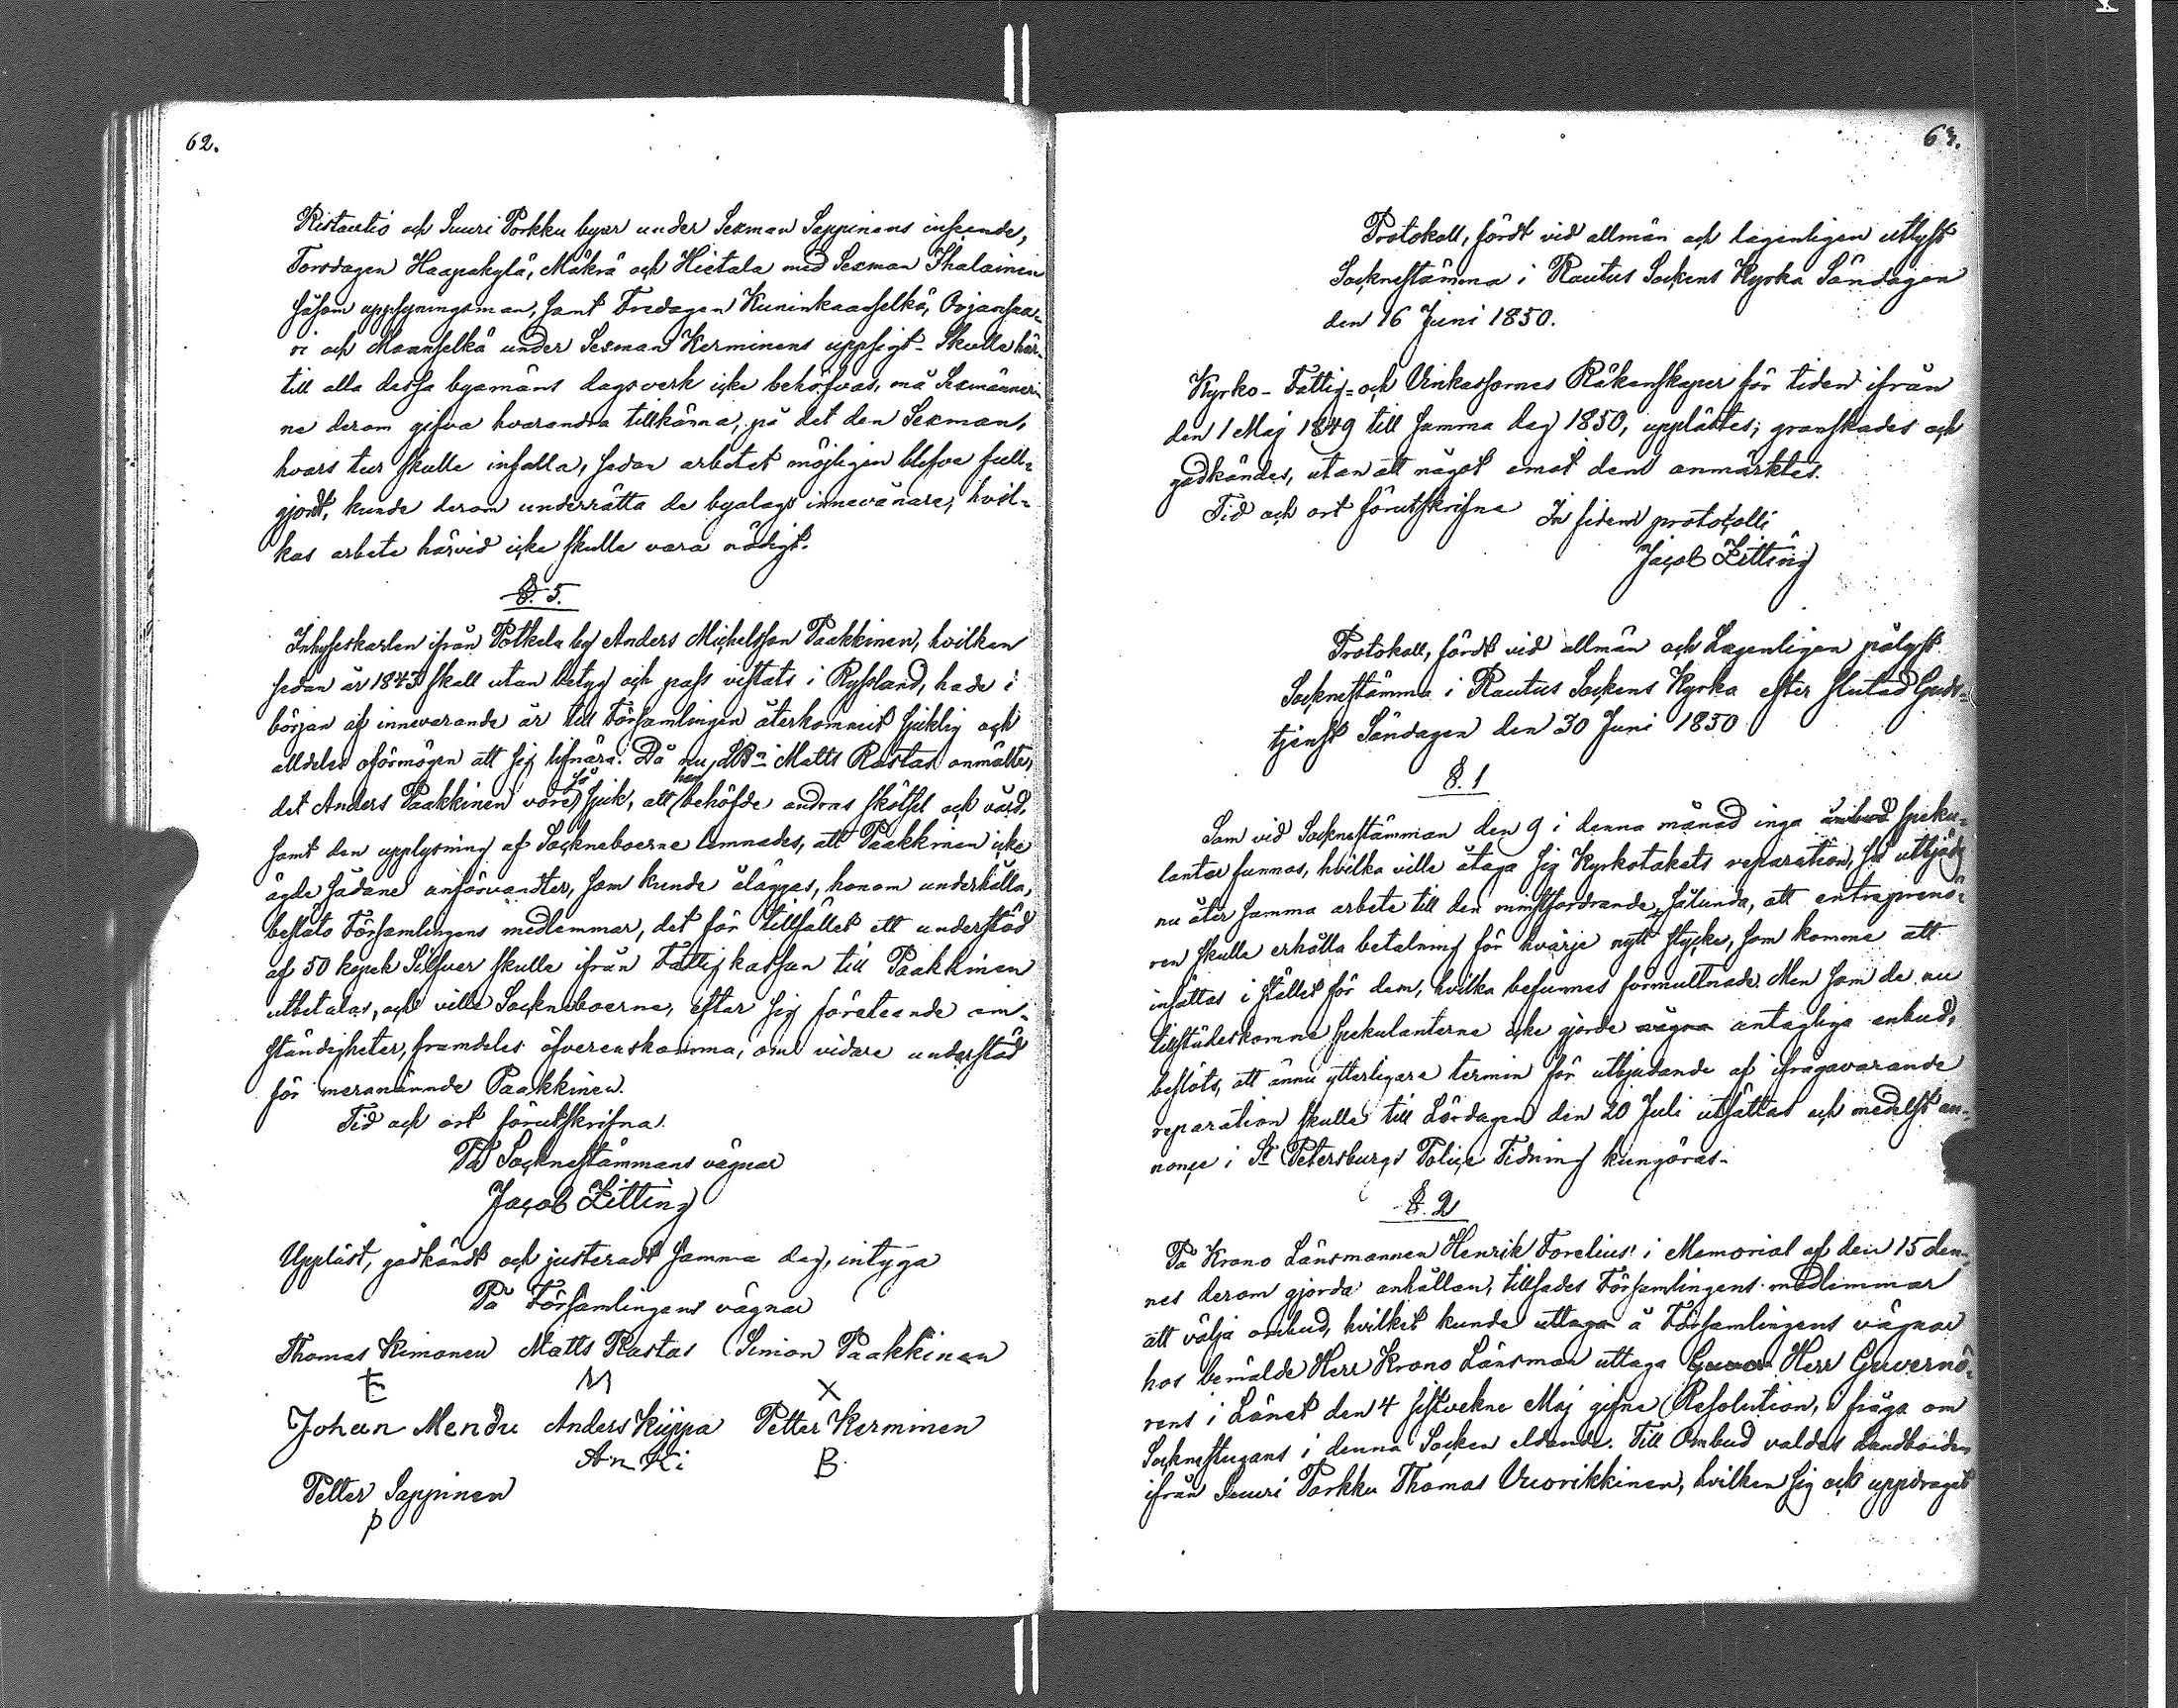 62.
Ristautio och Suuri Porkku byar under Sexman Sappinens inseende,
Torsdagen Haapakylä, Mäkrä och Hietala med Sexman Ihalainen
såsom uppsyningsman, samt Fredagen Kuninkaanselkä, Orjansaa-
ri och Maanselkä under Sexman Kerminens uppsigt. Skulle här-
till alla dessa byamäns dagsverk icke behöfvas, må Sexmänner-
ne derom gifva hvarandra tillkänna, på det den Sexman,
hvars tur skulle infalla, sedan arbetet möjligen blefve full-
gjordt, kunde derom underrätta de byalags innevånare, hvil-
kas arbete härvid icke skulle vara nödigt.
§. 5.
Inhyseskarlen ifrån Potkela by Anders Michelsson Paakkinen, hvilken
sedan år 1843 skall utan betyg och pass vistats i Ryssland, hade i
början af innevarande år till Församlingen återkommit sjuklig och
alldeles oförmögen att sig lifnära. Då nu Matts Rastas anmälte,
det Anders Paakkinen vore så sjuk, att han behöfde andras skötsel och vård,
samt den upplysning af Sockneboerne lemnades, att Paakkinen icke
ägde sådane anförvandter, som kunde åläggas, honom underhålla,
beslöto Församlingens medlemmar, det för tillfället ett understöd
af 50 kopek Silfver skulle ifrån Fattigkassan till Paakkinen
utbetalas, och ville Sockneboerne, efter sig företeende om-
ständigheter, framdeles öfverenskomma, om vidare understöd
för meranämnde Paakkinen.
Tid och ort förutskrifna.
På Sockneståmmans vägnar
Jacob Zitting
Uppläst, godkändt och justeradt samma dag, intyga
På Församlingens vägnar
Thomas Kimonen Matts Rastas Simon Paakkinen
E M X
Johan Mendu Anders Kiippa Petter Kerminen
An Ki B.
Petter Sappinen
p
63.
Protokoll, fördt vid allmän och lagenligen utlyst
Socknestämma i Rautus Sockens Kyrka Söndagen
den 16 Juni 1850.
Kyrko- Fattig- och Vinkassornes Räkenskaper för tiden ifrån
den 1 Maj 1849 till samma dag 1850, upplästes, granskades och
godkändes, utan att något emot dem anmärktes.
Tid och ort förutskrifne In fidem protocolli
Jacob Zitting
Protokoll, fördt vid allmän och Lagenligen pålyst
Socknestämma i Rautus Sockens Kyrka efter slutad Guds-
tjenst Söndagen den 30 Juni 1850
§. 1
Som vid Socknestämman den 9 i denna månad inga anbud speku-
lanter funnos, hvilka ville åtaga sig Kyrkotakets reparation, så utbjöds
nu åter samma arbete till den minstfordrande, sålunda, att entreprenö-
ren skulle erhålla betalning för hvarje nytt stycke, som komme att
insättas i stället för dem, hvilka befunnes förmultnade. Men som de nu
tillstädeskomne spekulanterne icke gjorde några antagliga anbud,
beslöts, att ännu ytterligare termin för utbjudande af ifrågavarande
reparation skulle till Lördagen den 20 Juli utsättas och medelst an-
nonce i St Petersburgs Police Tidning kungöras.
§. 2
På Krono Länsmannen Henrik Forelius' i Memorial af den 15 den-
nes derom gjorda anhållan, tillsades Församlingens medlemmar
att välja ombud, hvilket kunde uttaga å Församlingens vägnar
hos bemälde Herr Krono Länsman uttaga Herr Guvernö-
rens i Länet den 4 sistvekne Maj gifne Resolution, i fråga om
Socknestugans i denna Socken eldande. Till Ombud valdes Landbonden
ifrån Suuri Porkku Thomas Vuorikkinen, hvilken sig och uppdraget